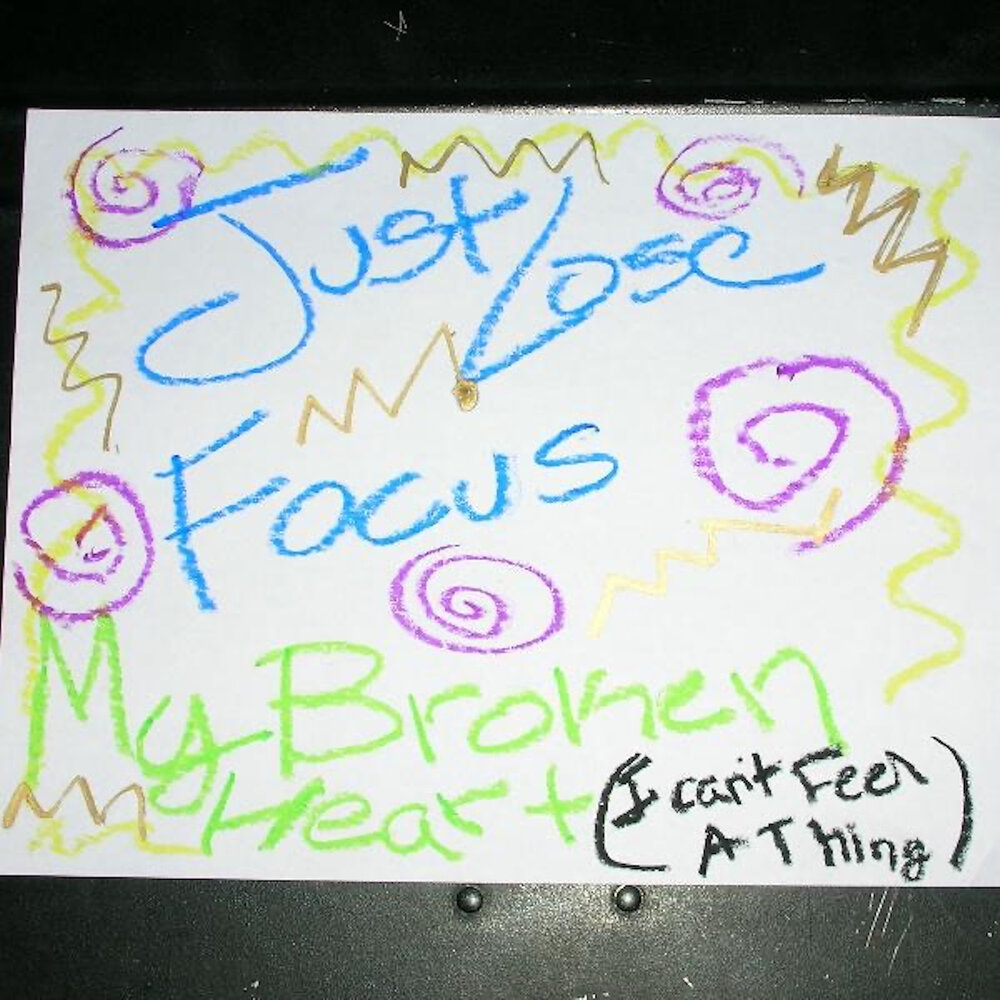 Just Lose
Focus
My Broken
Heart
(I can't Feel
A Thing)